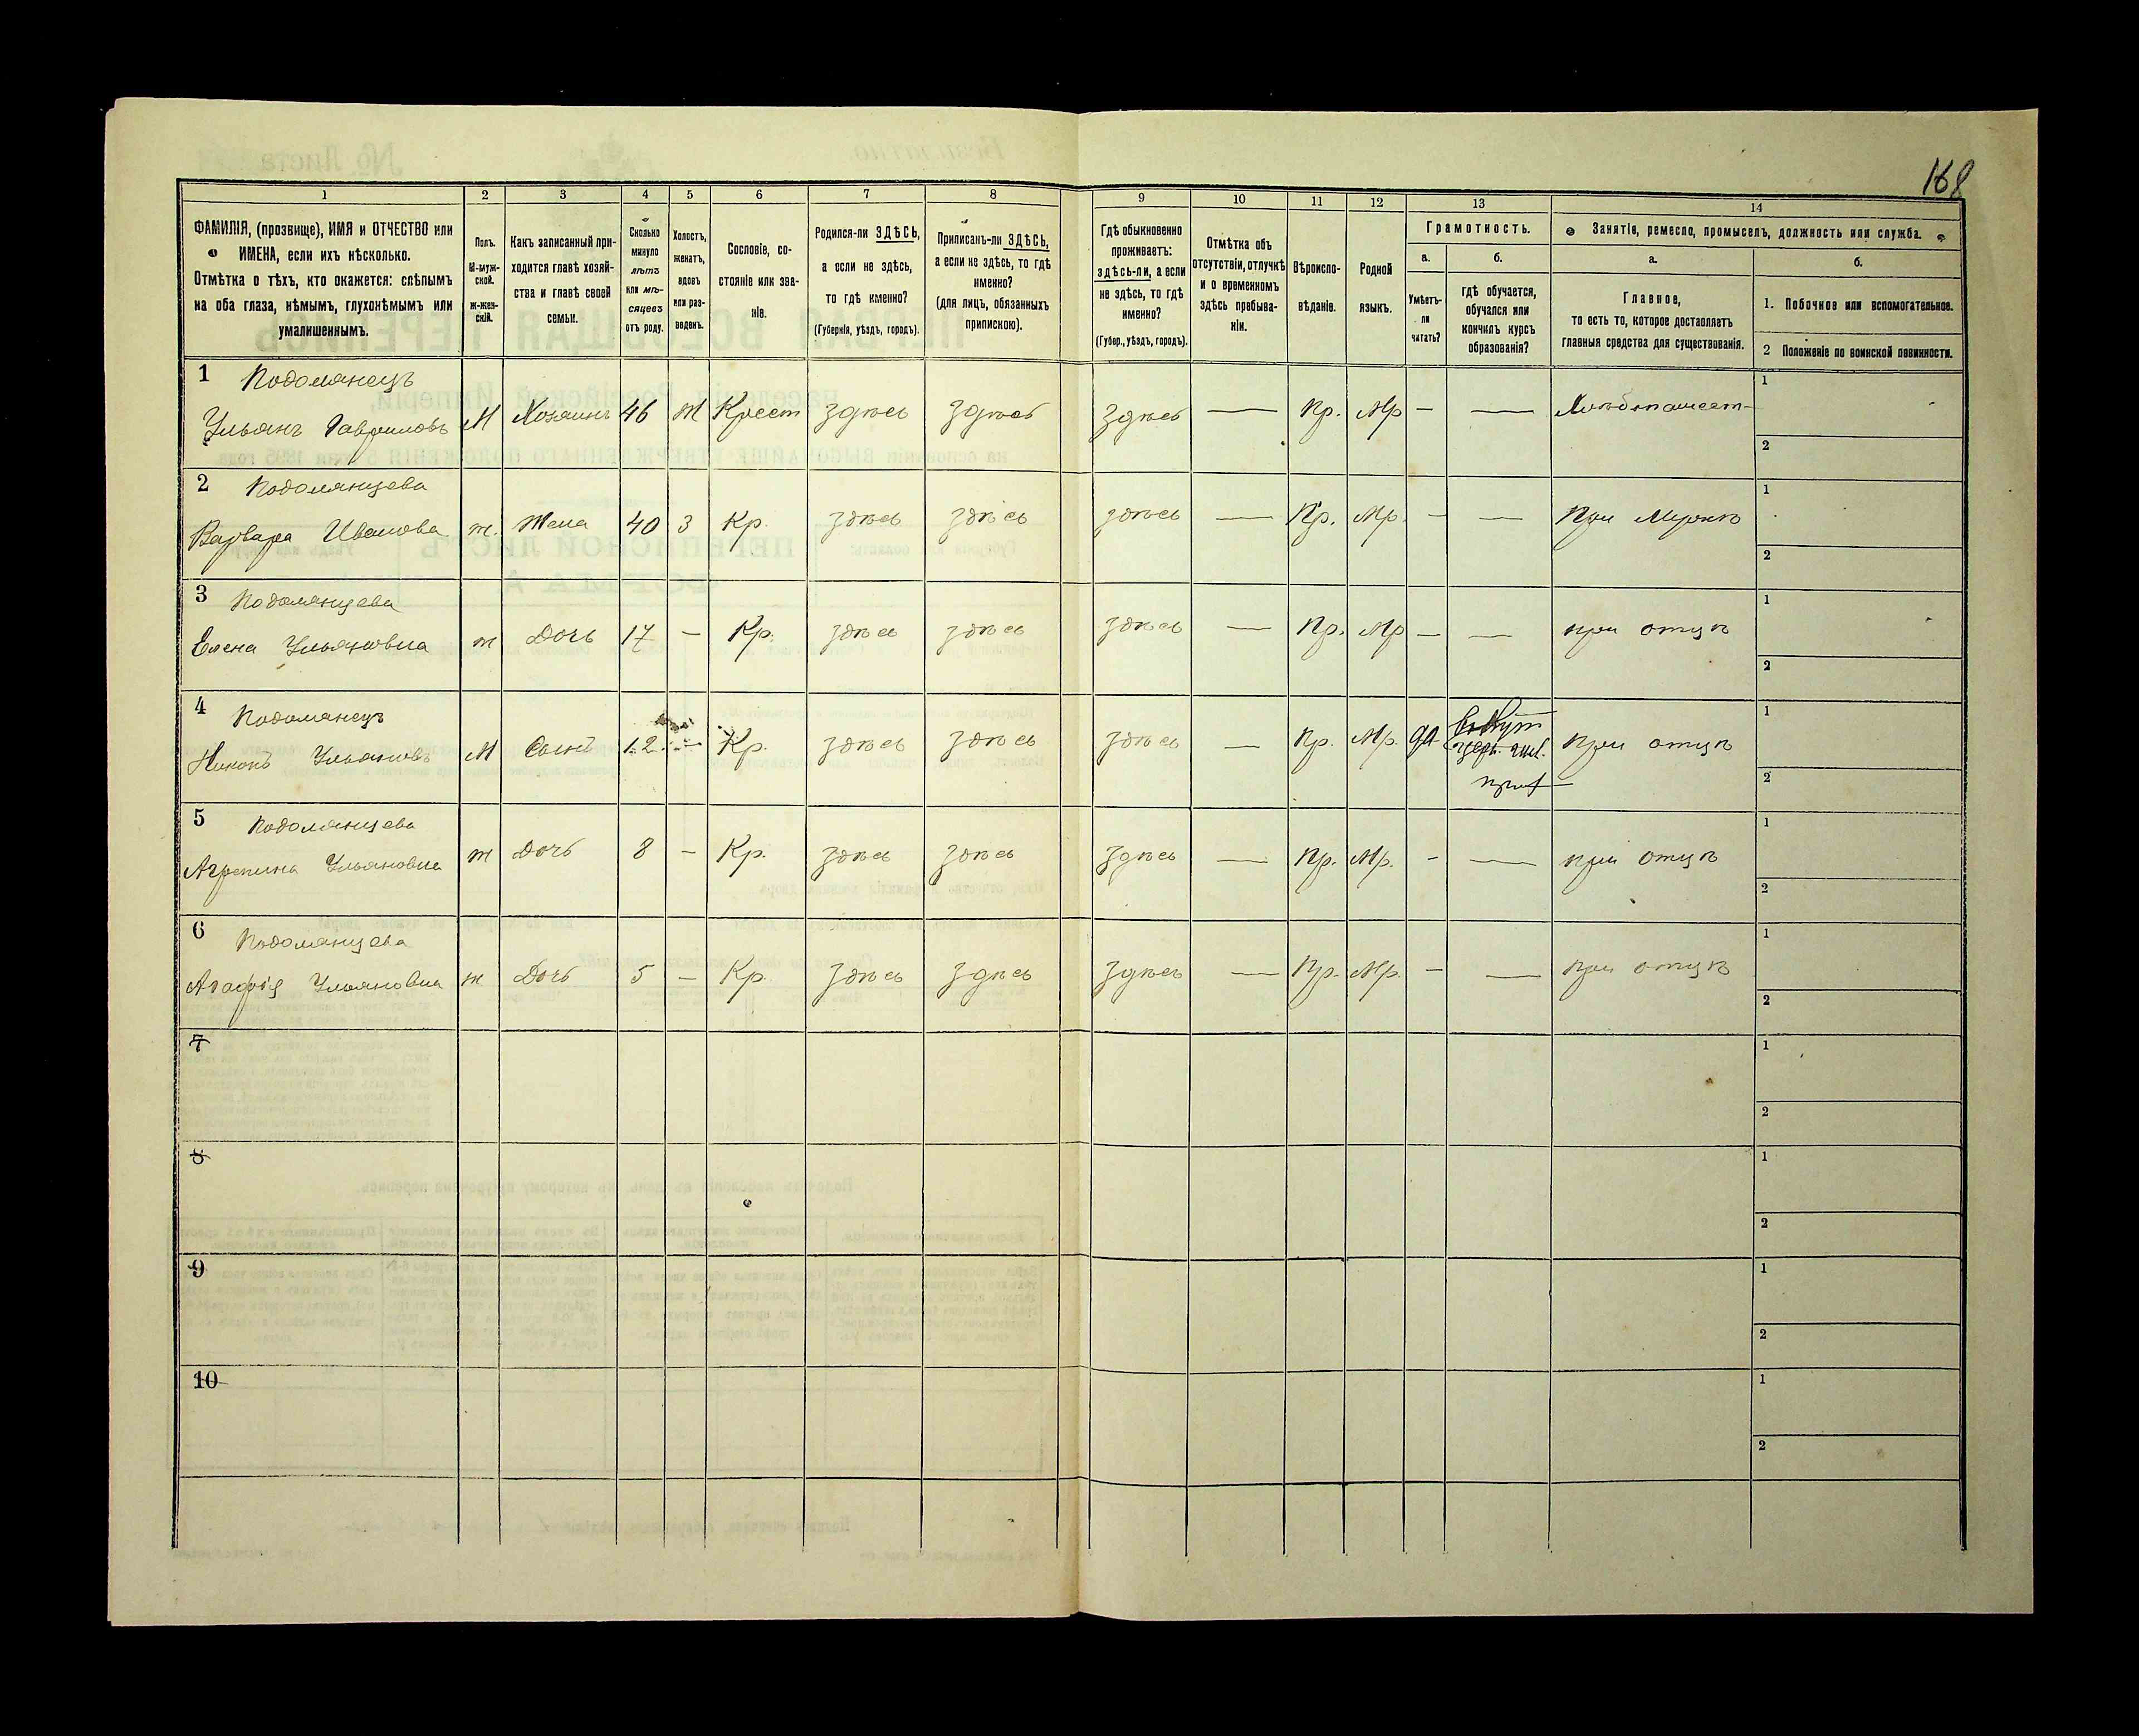 168
1 2 3 4 5 6 7 8 9 10 11 12 13 14
ФАМИЛІЯ, (прозвище), ИМЯ и ОТЧЕСТВО или
ИМЕНА, если ихъ нѣсколько.
Отмѣтка о тѣхъ, кто окажется: слѣпымъ
на оба глаза, нѣмымъ, глухонѣмымъ или
умалишеннымъ.
Полъ.
М-муж-
ской.
Ж-жен-
скій.
Какъ записанный при-
ходится главѣ хозяй-
ства и главѣ своей
семьи.
Сколько
минуло
лѣтъ
или мѣ-
сяцевъ
отъ роду.
Холостъ,
женатъ,
вдовъ
или раз-
веденъ.
Сословіе, со-
стояніе или зва-
ніе.
Родился-ли ЗДѢСЬ,
а если не здѣсь,
то гдѣ именно?
(Губернія, уѣздъ, городъ).
Приписанъ-ли ЗДѢСЬ,
а если не здѣсь, то гдѣ
именно?
(для лицъ, обязанныхъ
припискою).
Гдѣ обыкновенно
проживаетъ:
здѣсь-ли, а если
не здѣсь, то гдѣ
именно?
(Губер., уѣздъ, городъ).
Отмѣтка объ
отсутствіи, отлучкѣ
и о временномъ
здѣсь пребыва-
ніи.
Вѣроиспо-
вѣданіе.
Родной
языкъ.
Грамотность.
а.
Умѣетъ-
ли
читать?
б.
гдѣ обучается,
обучался или
кончилъ курсъ
образованія?
Занятіе, ремесло, промыселъ, должность или служба.
а.
Главное,
то есть то, которое доставляетъ
главныя средства для существованія.
б.
1. Побочное или вспомогательное.
2 Положеніе по воинской повинности.
1 Подолянецъ
Ульянъ Гавриловъ М Хозяинъ 46 Ж Крест здѣсь здѣсь здѣсь — Пр. Мр — — Хлѣбопашест-
1
2
2 Подолянцева
Варвара Иванова ж. Жена 40 З Кр. здѣсь здѣсь здѣсь — Пр. Мр. — — При Мужѣ
1
2
3 Подолянцева
Елена Ульяновна ж Дочь 17 — Кр. здѣсь здѣсь здѣсь — Пр. Мр — — при отцѣ
1
2
4 Подолянецъ
Никонъ Ульяновъ М Сынъ 12 — Кр. здѣсь здѣсь здѣсь — Пр. Мр. да при отцѣ
1
2
5 Подолянцева
Агрепина Ульяновна ж Дочь 8 — Кр. здѣсь здѣсь здѣсь — Пр. Мр. — — при отцѣ
1
2
6 Подолянцева
Агафія Ульяновна ж Дочь 5 — Кр. здѣсь здѣсь здѣсь — Пр. Мр. — — при отцѣ
1
2
7
1
2
8
1
2
9
1
2
10
1
2